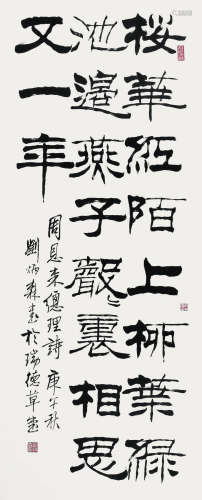 桜華紅陌上柳葉緑
池邊燕子聲〻裏相思
又一年
周恩来總理詩 庚午秋
劉炳森書於瑞德草堂